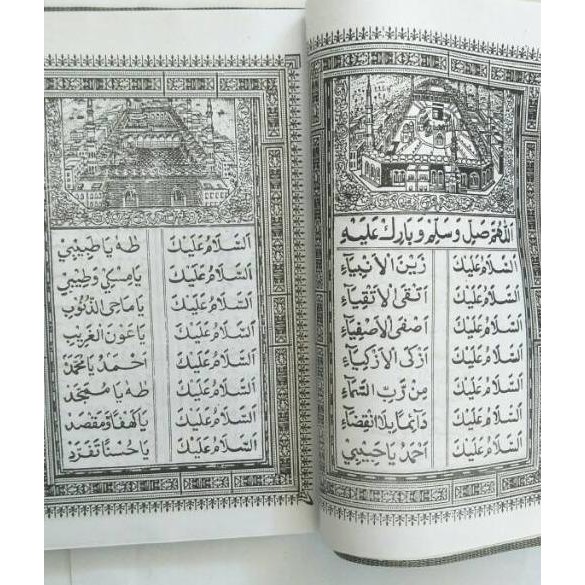 اَللّٰهُمَّ صَلِّ وَسَلِّمْ وَبَارِكْ عَلَيْهِ
اَلسَّلَامُ عَلَيْكَ زَيْنَ الْأَنْبِيَآءِ
اَلسَّلَامُ عَلَيْكَ اَتْقَى الْأَتْقِيَآءِ
اَلسَّلَامُ عَلَيْكَ اَصْفَى الْأَصْفِيَآءِ
اَلسَّلَامُ عَلَيْكَ اَزْكَى الْأَزْكِيَآءِ
اَلسَّلَامُ عَلَيْكَ مِنْ رَّبِّ السَّمَآءِ
اَلسَّلَامُ عَلَيْكَ دَآئِمًا بِلَا انْقِضَآءِ
اَلسَّلَامُ عَلَيْكَ اَحْمَدُ يَا حَبِيْبِيْ
اَلسَّلَامُ عَلَيْكَ طٰهٰ يَا طَبِيْبِيْ
اَلسَّلَامُ عَلَيْكَ يَا مِسْكِيْ وَطِيْبِيْ
اَلسَّلَامُ عَلَيْكَ يَا مَاحِيَ الذُّنُوْبِ
اَلسَّلَامُ عَلَيْكَ يَا عَوْنَ الْغَرِيْبِ
اَلسَّلَامُ عَلَيْكَ اَحْمَدُ يَا مُحَمَّدُ
اَلسَّلَامُ عَلَيْكَ طٰهٰ يَا مُمَجَّدُ
اَلسَّلَامُ عَلَيْكَ يَا كَهْفًا وَمَقْصَدْ
اَلسَّلَامُ عَلَيْكَ يَا حُسْنًا تَفَرَّدْ